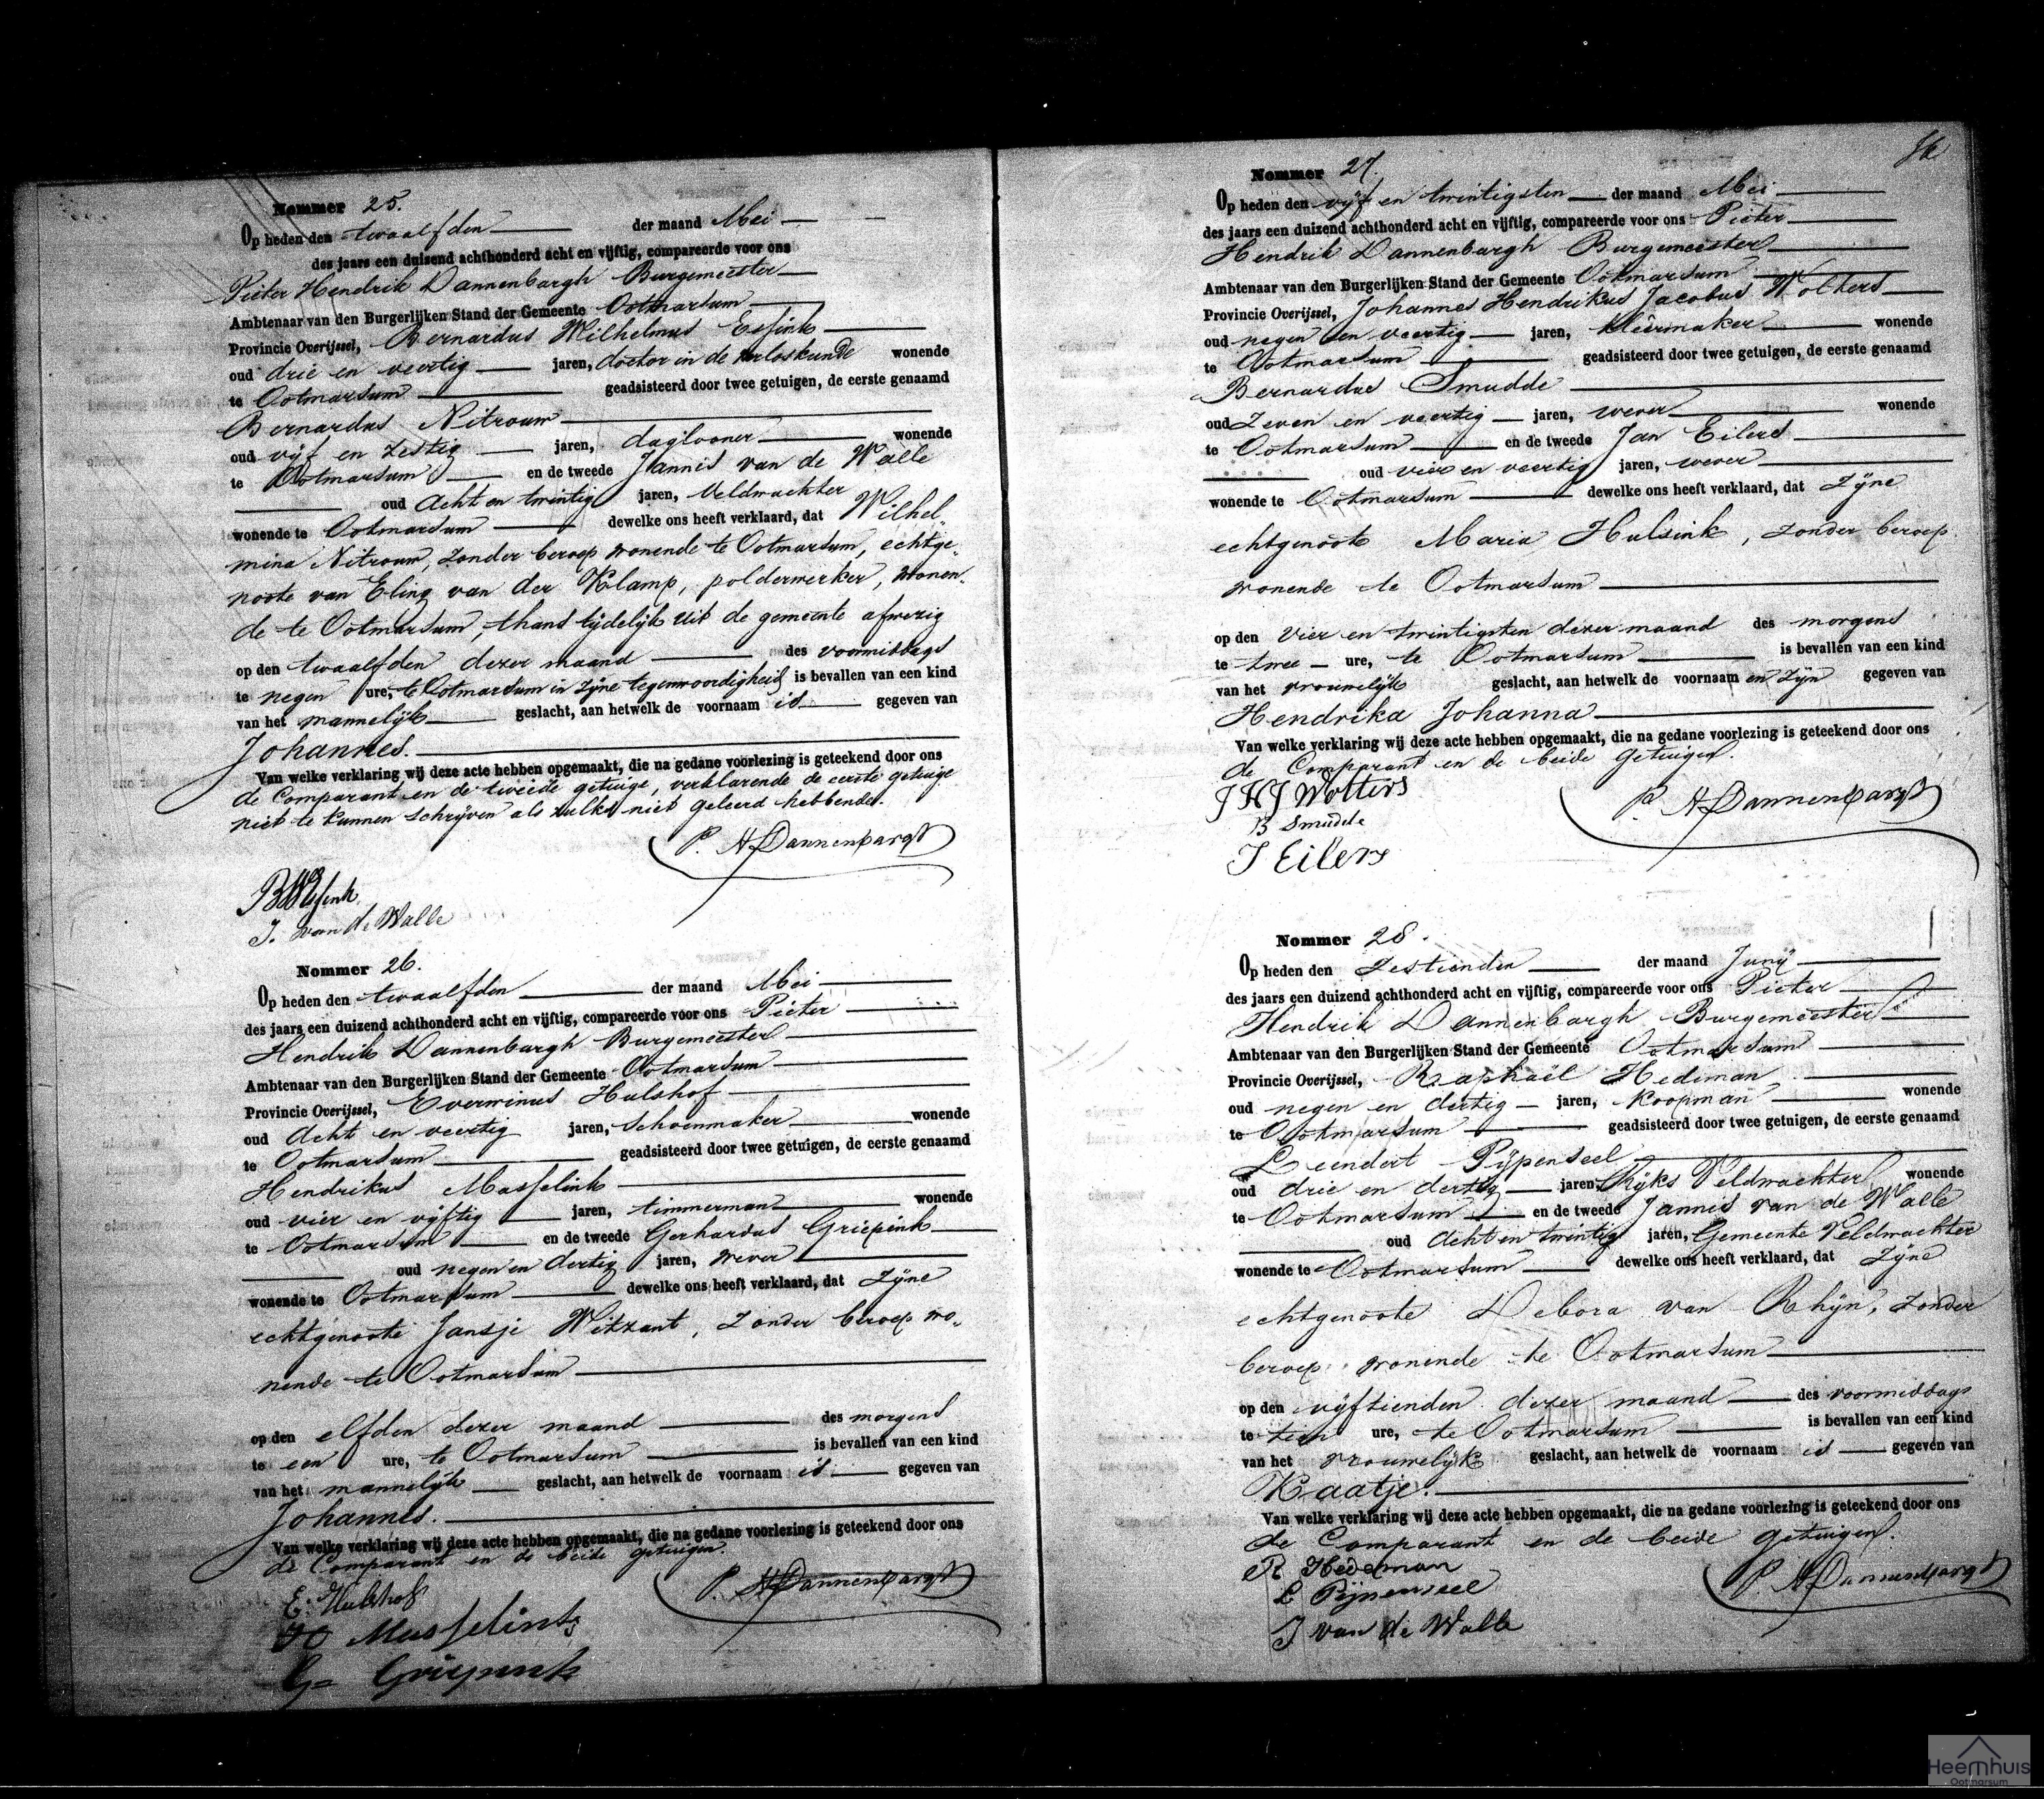 Nommer 25.
Op heden den twaalfden der maand Mei
des jaars een duizend achthonderd acht en vijftig, compareerde voor ons
Pieter Hendrik Dannenbargh Burgemeester
Ambtenaar van den Burgerlijken Stand der Gemeente Ootmarsum
Provincie Overijssel, Bernardus Wilhelmus Essink
oud drie en veertig jaren, doctor in de verloskunde wonende
te Ootmarsum geadsisteerd door twee getuigen, de eerste genaamd
Bernardus Nitrouw
oud vijf en zestig jaren, daglooner wonende
te Ootmarsum en de tweede Jannis van de Walle
oud acht en twintig jaren, Veldwachter
wonende te Ootmarsum dewelke ons heeft verklaard, dat Wilhel-
mina Nitrouw, zonder beroep wonende te Ootmarsum, echtge-
noote van Eling van der Klamp, polderwerker, wonen-
de te Ootmarsum, thans tijdelijk uit de gemeente afwezig
op den twaalfden dezer maand des voormiddags
te negen ure, te Ootmarsum in zijne tegenwoordigheid is bevallen van een kind
van het mannelijk geslacht, aan hetwelk de voornaam is gegeven van
Johannes.
Van welke verklaring wij deze acte hebben opgemaakt, die na gedane voorlezing is geteekend door ons
de Comparant en de tweede getuige, verklarende de eerste getuige
niet te kunnen schrijven als zulks niet geleerd hebbende.
P. H Dannenbargh
BW Essink
J. van de Walle
Nommer 26.
Op heden den twaalfden der maand Mei
des jaars een duizend achthonderd acht en vijftig, compareerde voor ons Pieter
Hendrik Dannenbargh Burgemeester
Ambtenaar van den Burgerlijken Stand der Gemeente Ootmarsum
Provincie Overijssel, Everwinus Hulshof
oud acht en veertig jaren, schoenmaker wonende
te Ootmarsum geadsisteerd door twee getuigen, de eerste genaamd
Hendrikus Masselink
oud vier en vijftig jaren, timmerman wonende
te Ootmarsum en de tweede Gerhardus Griepink
oud negen en dertig jaren, wever
wonende te Ootmarsum dewelke ons heeft verklaard, dat Zijne
echtgenoote Jansje Witzant, zonder beroep wo-
nende te Ootmarsum
op den elfden dezer maand des morgens
te een ure, te Ootmarsum is bevallen van een kind
van het mannelijk geslacht, aan hetwelk de voornaam is gegeven van
Johannes.
Van welke verklaring wij deze acte hebben opgemaakt, die na gedane voorlezing is geteekend door ons
de Comparant en de beide getuigen.
P. H Dannenbargh
E. Hulshof
H Masselink
G= Griepink
Nommer 27.
Op heden den vijf en twintigsten der maand Mei
des jaars een duizend achthonderd acht en vijftig, compareerde voor ons Pieter
Hendrik Dannenbargh Burgemeester
Ambtenaar van den Burgerlijken Stand der Gemeente Ootmarsum
Provincie Overijssel, Johannes Hendrikus Jacobus Wolters
oud negen en veertig jaren, kleermaker wonende
te Ootmarsum geadsisteerd door twee getuigen, de eerste genaamd
Bernardus Smudde
oud zeven en veertig jaren, wever wonende
te Ootmarsum en de tweede Jan Eilers
oud vier en veertig jaren, wever
wonende te Ootmarsum dewelke ons heeft verklaard, dat Zijne
echtgenoote Maria Hulsink, zonder beroep
wonende te Ootmarsum
op den vier en twintigsten dezer maand des morgens
te twee ure, te Ootmarsum is bevallen van een kind
van het vrouwelijk geslacht, aan hetwelk de voornaam en zijn gegeven van
Hendrika Johanna
Van welke verklaring wij deze acte hebben opgemaakt, die na gedane voorlezing is geteekend door ons
de Comparant en de beide getuigen.
P. H Dannenbargh
J H J Wolters
B Smudde
J Eilers
Nommer 28.
Op heden den zestienden der maand Junij
des jaars een duizend achthonderd acht en vijftig, compareerde voor ons Pieter
Hendrik Dannenbargh Burgemeester
Ambtenaar van den Burgerlijken Stand der Gemeente Ootmarsum
Provincie Overijssel, Raphaël Hedeman
oud negen en dertig jaren, koopman wonende
te Ootmarsum geadsisteerd door twee getuigen, de eerste genaamd
Leendert Pijpenseel
oud drie en dertig jaren, Rijks Veldwachter wonende
te Ootmarsum en de tweede Jannis van de Walle
oud acht en twintig jaren, Gemeente Veldwachter
wonende te Ootmarsum dewelke ons heeft verklaard, dat Zijne
echtgenoote Debora van Rhijn, zonder
beroep wonende te Ootmarsum
op den vijftienden dezer maand des voormiddags
te tien ure, te Ootmarsum is bevallen van een kind
van het vrouwelijk geslacht, aan hetwelk de voornaam is gegeven van
Kaatje.
Van welke verklaring wij deze acte hebben opgemaakt, die na gedane voorlezing is geteekend door ons
de Comparant en de beide getuigen.
P. H Dannenbargh
R Hedeman
L Pijpenseel
J van de Walle
Heemhuis
Ootmarsum